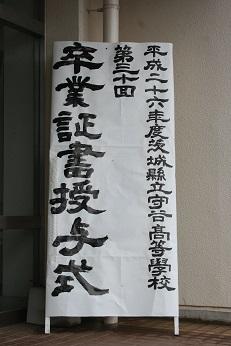 平成二十六年度茨城縣立守谷髙等學校
第三十回
卒業証書授与式